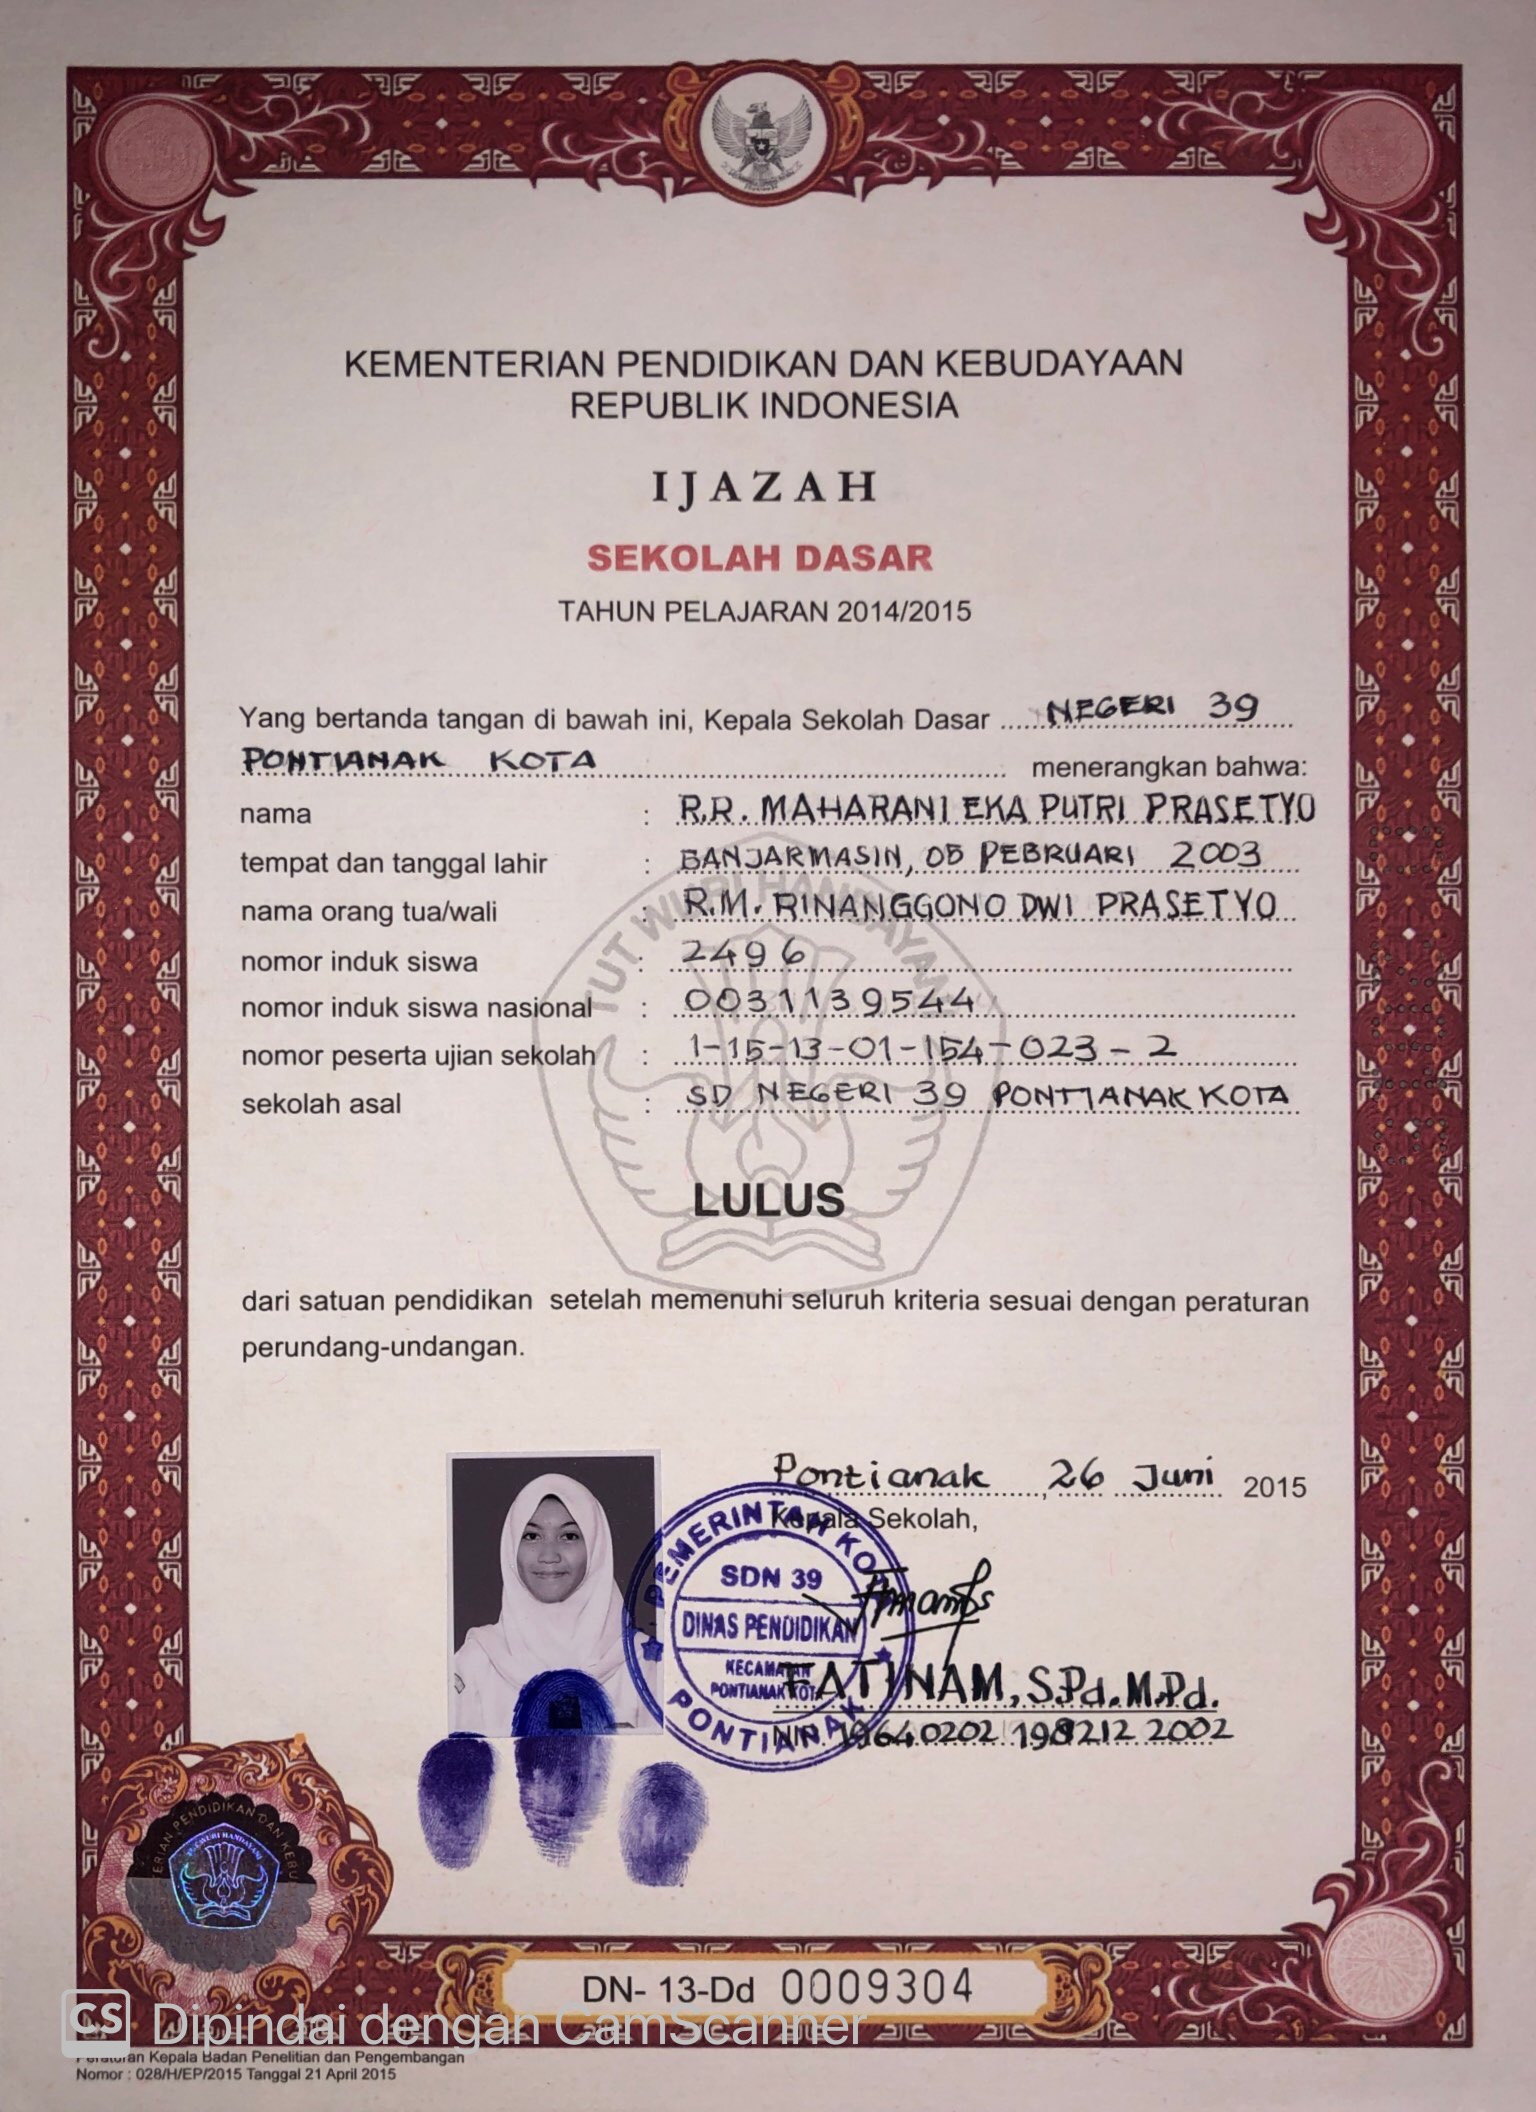 KEMENTERIAN PENDIDIKAN DAN KEBUDAYAAN
REPUBLIK INDONESIA
IJAZAH
SEKOLAH DASAR
TAHUN PELAJARAN 2014/2015
Yang bertanda tangan di bawah ini, Kepala Sekolah Dasar NEGERI 39
PONTIANAK KOTA menerangkan bahwa:
nama : R.R. MAHARANI EKA PUTRI PRASETYO
tempat dan tanggal lahir : BANJARMASIN, 05 PEBRUARI 2003
nama orang tua/wali : R.M. RINANGGONO DWI PRASETYO
nomor induk siswa : 2496
nomor induk siswa nasional : 0031139544
nomor peserta ujian sekolah : 1-15-13-01-154-023-2
sekolah asal : SD NEGERI 39 PONTIANAK KOTA
TUT WURI HANDAYANI
LULUS
dari satuan pendidikan setelah memenuhi seluruh kriteria sesuai dengan peraturan
perundang-undangan.
Pontianak, 26 Juni 2015
Kepala Sekolah,
PEMERINTAH KOTA
SDN 39
DINAS PENDIDIKAN
KECAMATAN
PONTIANAK KOTA
PONTIANAK
FATINAM, S.Pd. M.Pd.
NIP. 19640202 198212 2002
DN- 13-Dd 0009304
CS Dipindai dengan CamScanner
Peraturan Kepala Badan Penelitian dan Pengembangan
Nomor : 028/H/EP/2015 Tanggal 21 April 2015